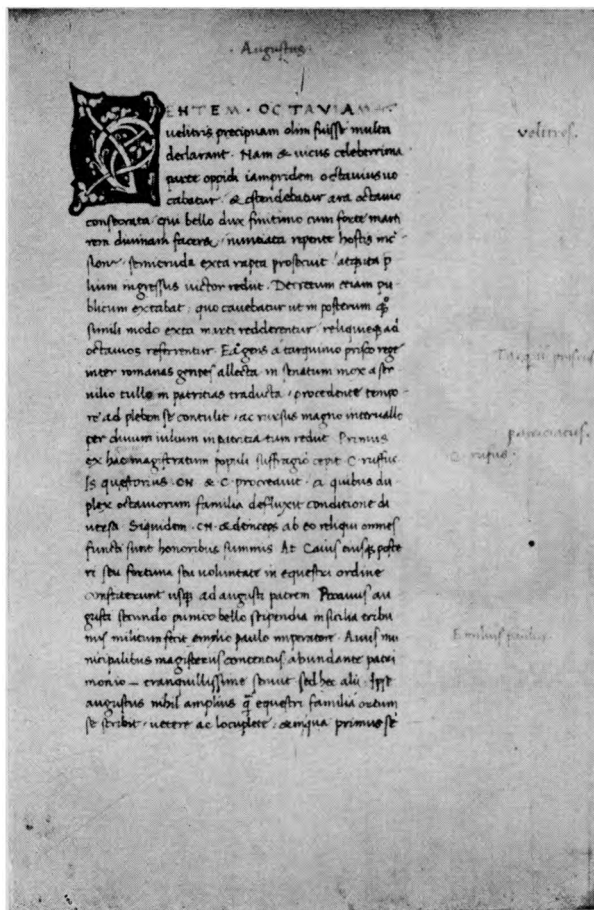 Augustus
GENTEM · OCTAVIAM
uelitris precipuam olim fuisse multa
declarant · Nam & uicus celeberrima
parte oppidi iampridem octauius uo
cabatur · & ostendebatur ara octauio
consecrata qui bello dux finitimo cum forte marti
rem diuinam faceret nunciata repente hostis inc
sione semicruda exta rapta prosecuit atque ita p
lium ingressus uictor rediit · Decretum etiam pu
blicum extabat · quo cauebatur ut in posterum
simili modo exta marti redderentur reliquieque ad
octauios referrentur Ea gens a tarquinio prisco rege
inter romanas gentes allecta in senatum mox a ser
uilio tullo in patritias traducta procedente tempo
re ad plebem se contulit ac rursus magno interuallo
per diuum iulium in patritiatum rediit Primus
ex hac magistratum populi suffragio cepit C · ruffus
Is questorius CN & C procreauit a quibus du
plex octauiorum familia defluxit conditione di
uersa Siquidem CN & deinceps ab eo reliqui omnes
functi sunt honoribus summis At Caius eiusque poste
ri seu fortuna seu uoluntate in equestri ordine
constiterunt usque ad augusti patrem Proauus au
gusti secundo punico bello stipendia in sicilia tribu
nus militum fecit emilio paulo imperatore Auus mu
nicipalibus magisteriis contentus abundante patri
monio tranquillissime senuit sed hec alii Ipse
augustus nihil amplius q̃ equestri familia ortum
se scribit uetere ac locuplete & in qua primus se
uelitres
Tarqui priscus
patriciatus
C rufus
Emilius paulus